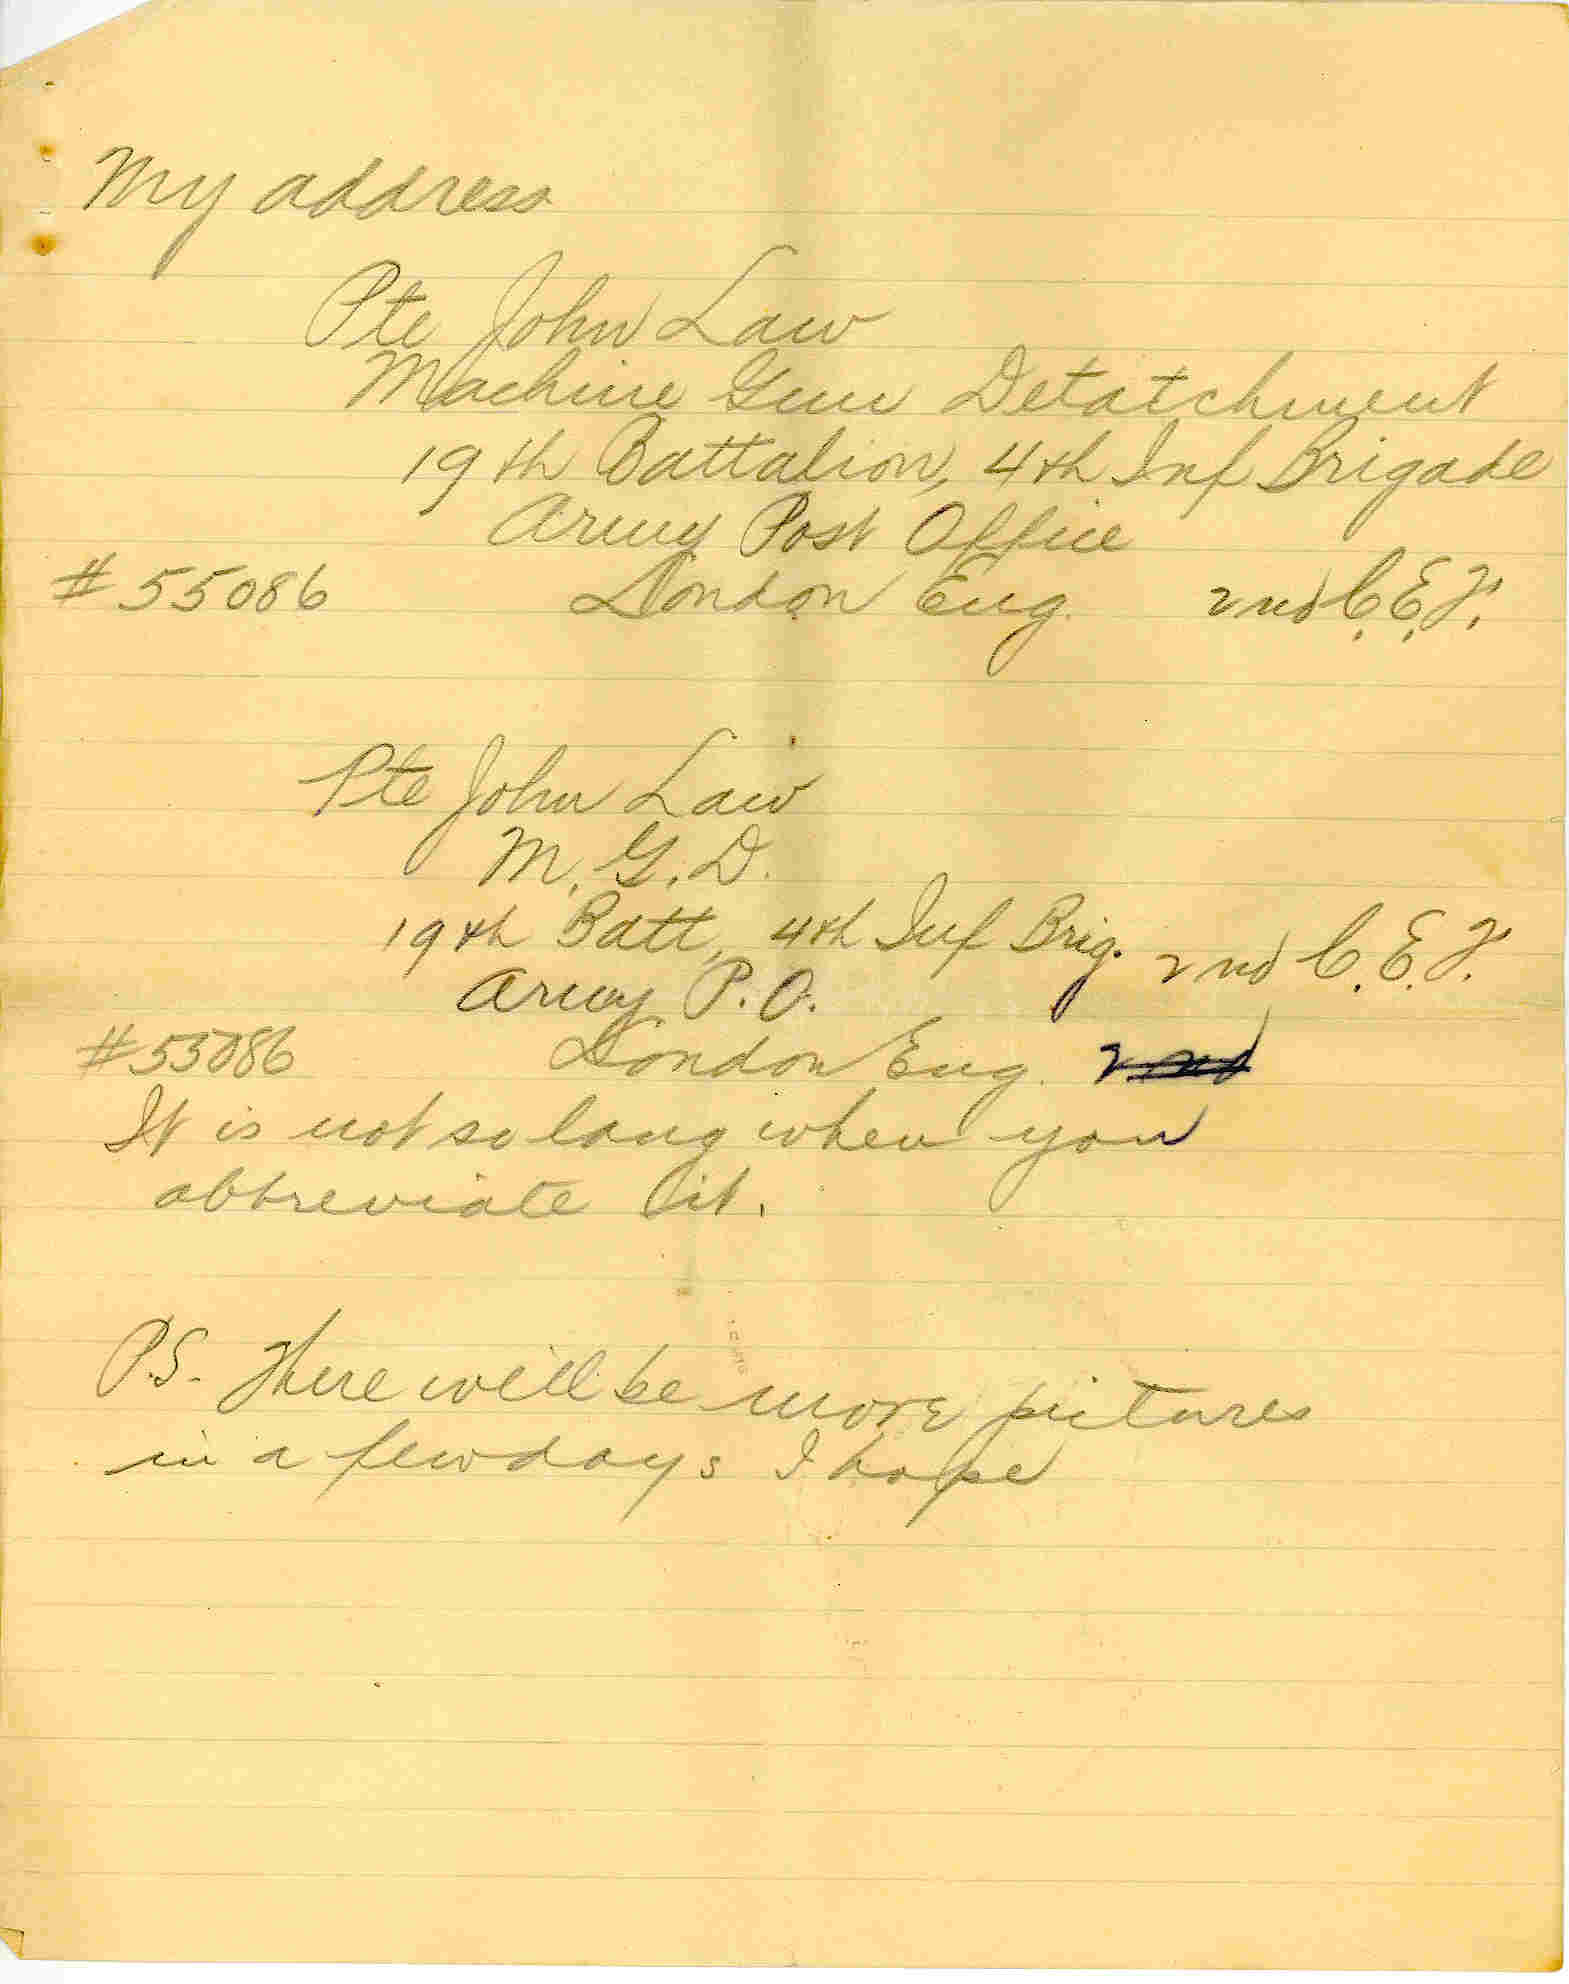 My address
Pte John Law
Machine Gun Detatchment
19th Battalion, 4th Inf Brigade
Army Post Office
#55086 London Eng. 2nd C.E.F.
Pte John Law
M.G.D.
19th Batt, 4th Inf Brig. 2nd C.E.F.
Army P.O.
#55086 London Eng. 2nd
It is not so long when you
abbreviate it.
P.S. There will be more pictures
in a few days I hope